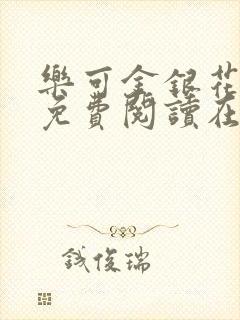 樂可金銀花
免費閱讀在
鐵俊瑞